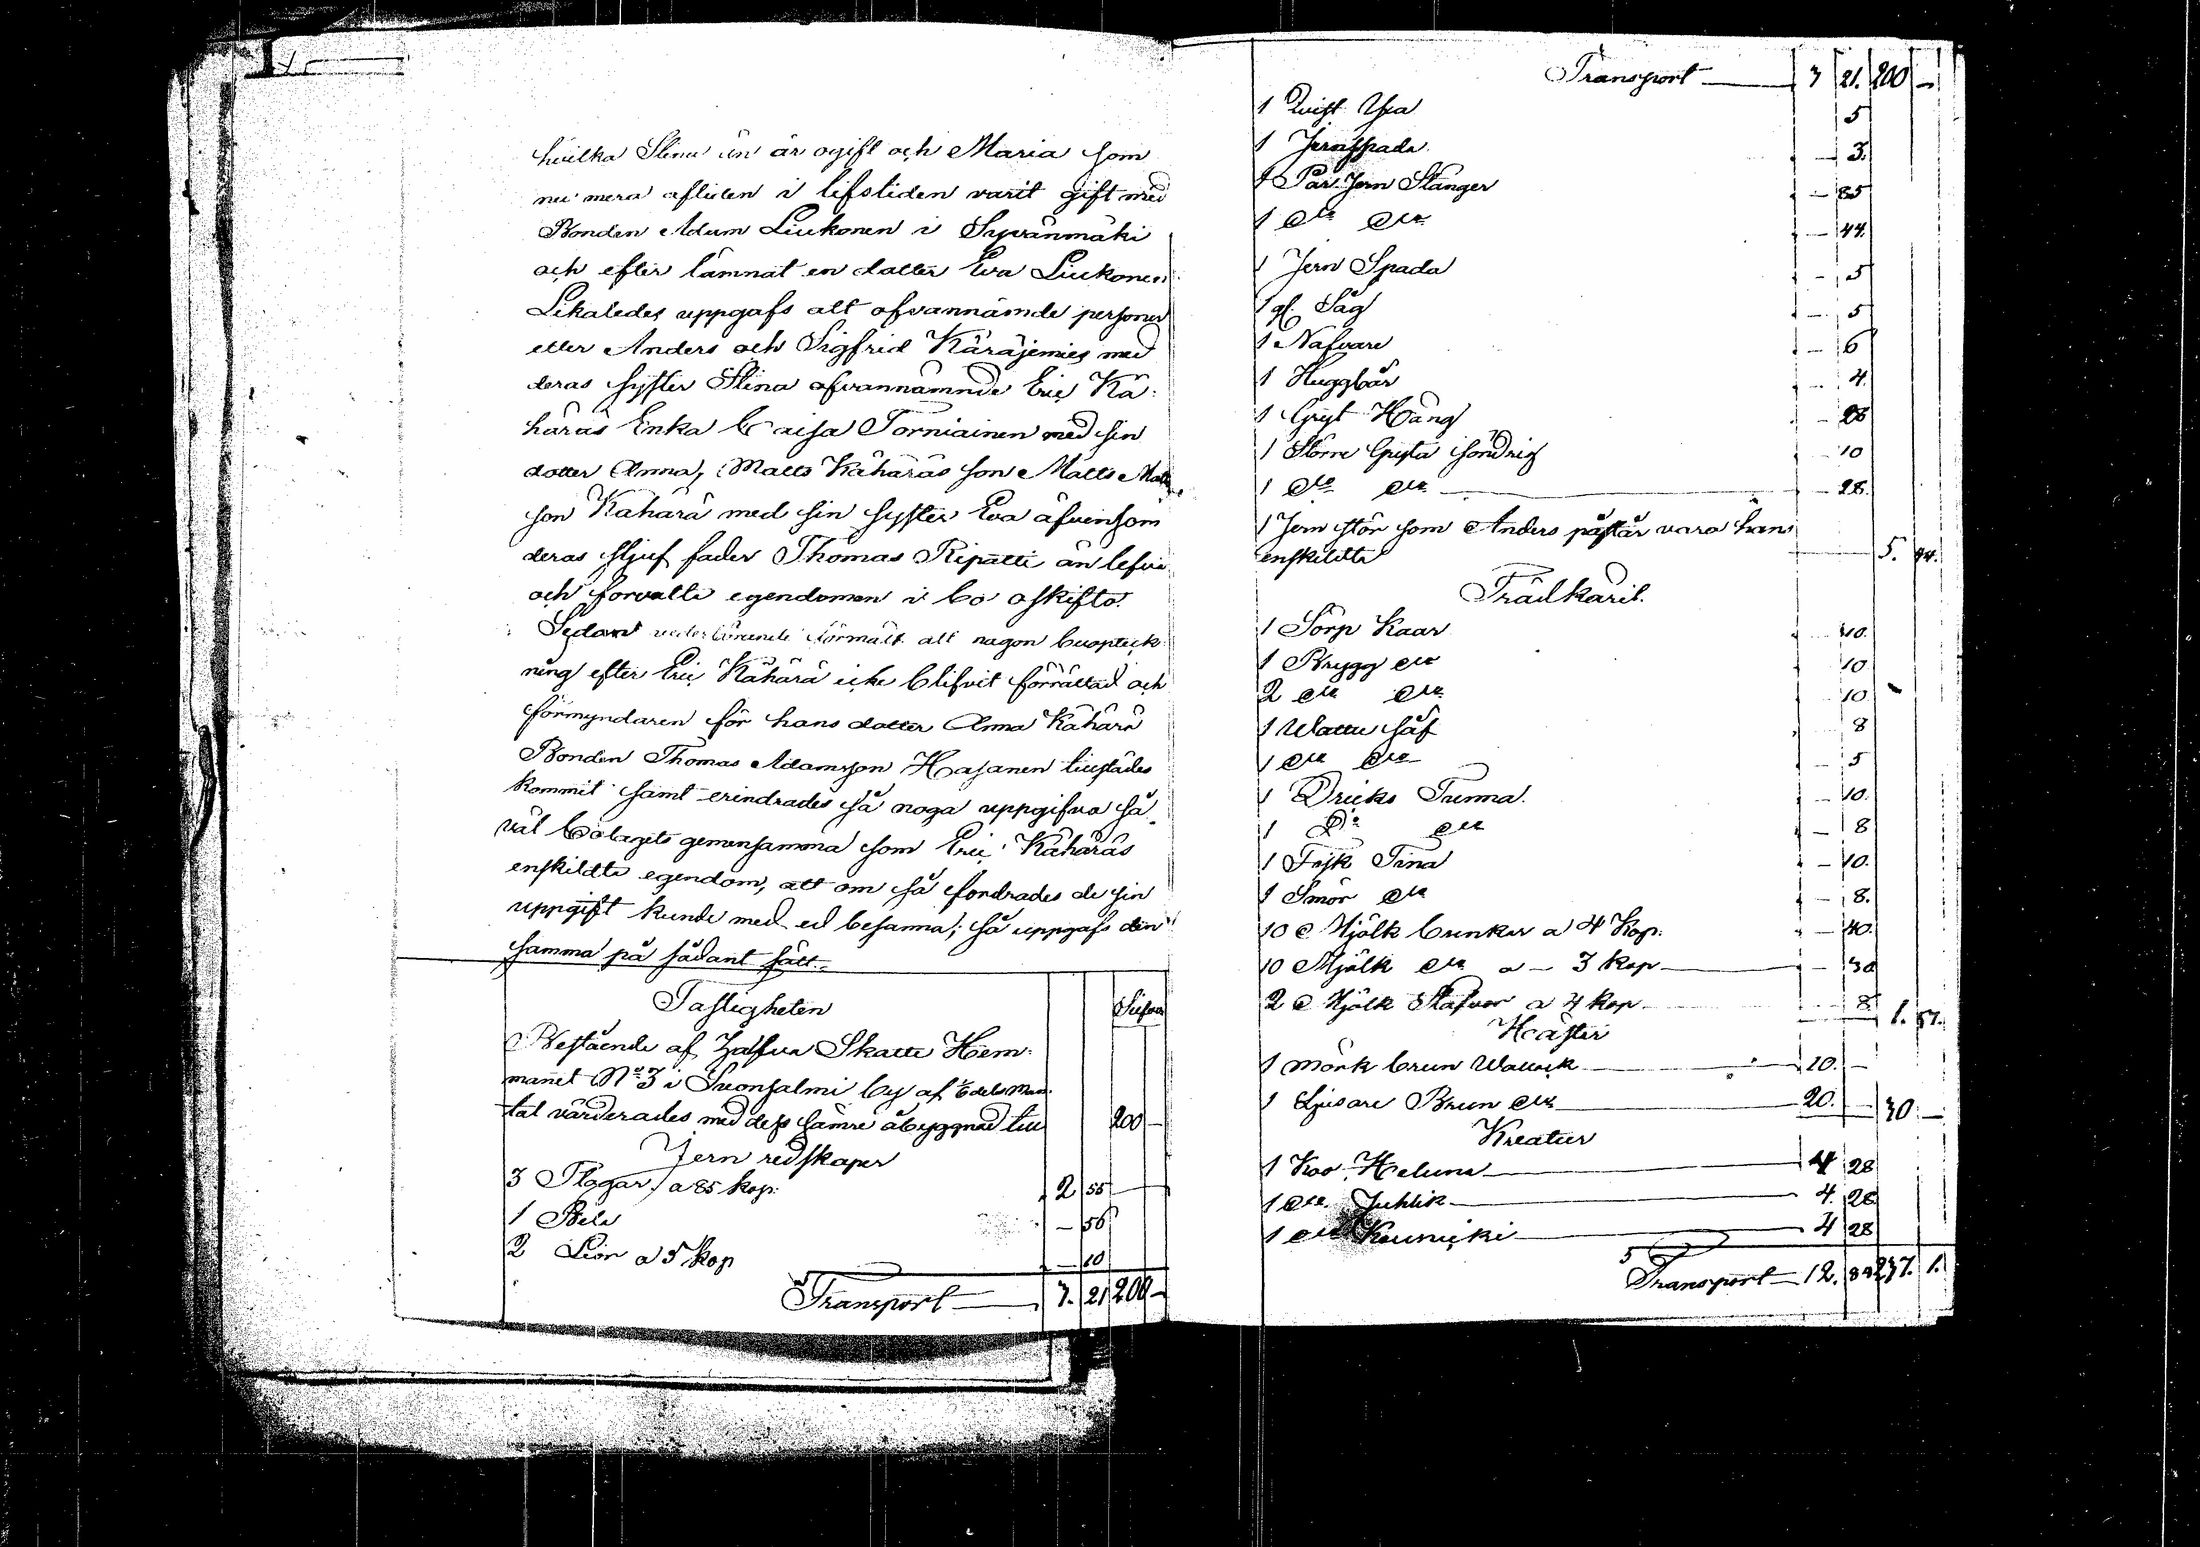 hvilka Stina än är ogift och Maria som
nu mera afliden i lifstiden varit gift med
Bonden Adam Liukonen i Syvänmäki
och efter lämnat en dotter Eva Liukonen
Likaledes uppgafs att ofvannämde personer
eller Anders och Sigfrid Käräjemies med
deras syster Stina ofvannämnde Eric Kä-
häräs Enka Caisa Torniainen med sin
dotter Anna, Matts Kähäräs son Matts Matts
son Kähärä med sin syster Eva äfvensom
deras stjuf fader Thomas Ripatti än lefva
och förvalta egendomen i bo oskifto.
Sedan vederbörande förmält att någon bouptek-
ning efter Eric Kähärä icke blifvit förrättad och
förmyndaren för hans dotter Anna Kähärä
Bonden Thomas Adamsson Hasanen tillstädes
kommit samt erindrades så noga uppgifva så
väl bolagets gemensamma som Eric Kähäräs
enskildta egendom, att om så fordrades de sin
uppgift kunde med ed besanna; så uppgafs den
samma på sådant sätt.
Fastigheten Silfver
Bestående af halfva Skatte Hem-
manet No 3 i Suonsalmi by af 1/6 dels Man-
tal värderades med dess sämre åbyggnad till 200 —
Jern redskaper
3 Plogar a 85 kop. 2 55
1 Bila — 56
2 Liar a 5 kop — 10
Transport 3. 21 200 —
Transport 3 21. 200 —
1 Qvist Yxa 5
1 Jernspada — 3.
1 Par Jern Stänger — 85
1 do do — 44.
1 Jern Spada — 5
1 gl. Såg — 5
1 Nafvare — 6
1 Huggbår — 4.
1 Gryt Häng — 28
1 Större Gryta söndrig 10
1 do do — 28.
1 Jern stör som Anders påstår vara hans
enskildta 5. 44.
Trädkäril.
1 Sörp Kaar 40.
1 Brygg do 10
2 do do 10.
1 Wattu såf 8
1 do do — 5
1 Dricks Tunna. — 10.
1 Do do — 8
1 Fisk Tina — 10.
1 Smör do — 8.
10 Mjölk bunkar a 4 Kop. — 40.
10 Mjölk do a — 3 kop — 30
2 Mjölk Stäfvor a 4 kop 8 1. 57.
Hästar
1 mörk brun Wallack 10. —
1 Ljusare Brun do 20. — 30 —
Kreatur
1 Koo Heluna 4 28
1 do Juhlik 4. 28
1 do Kaunicki 4 28
Transport 12. 84 237. 1.